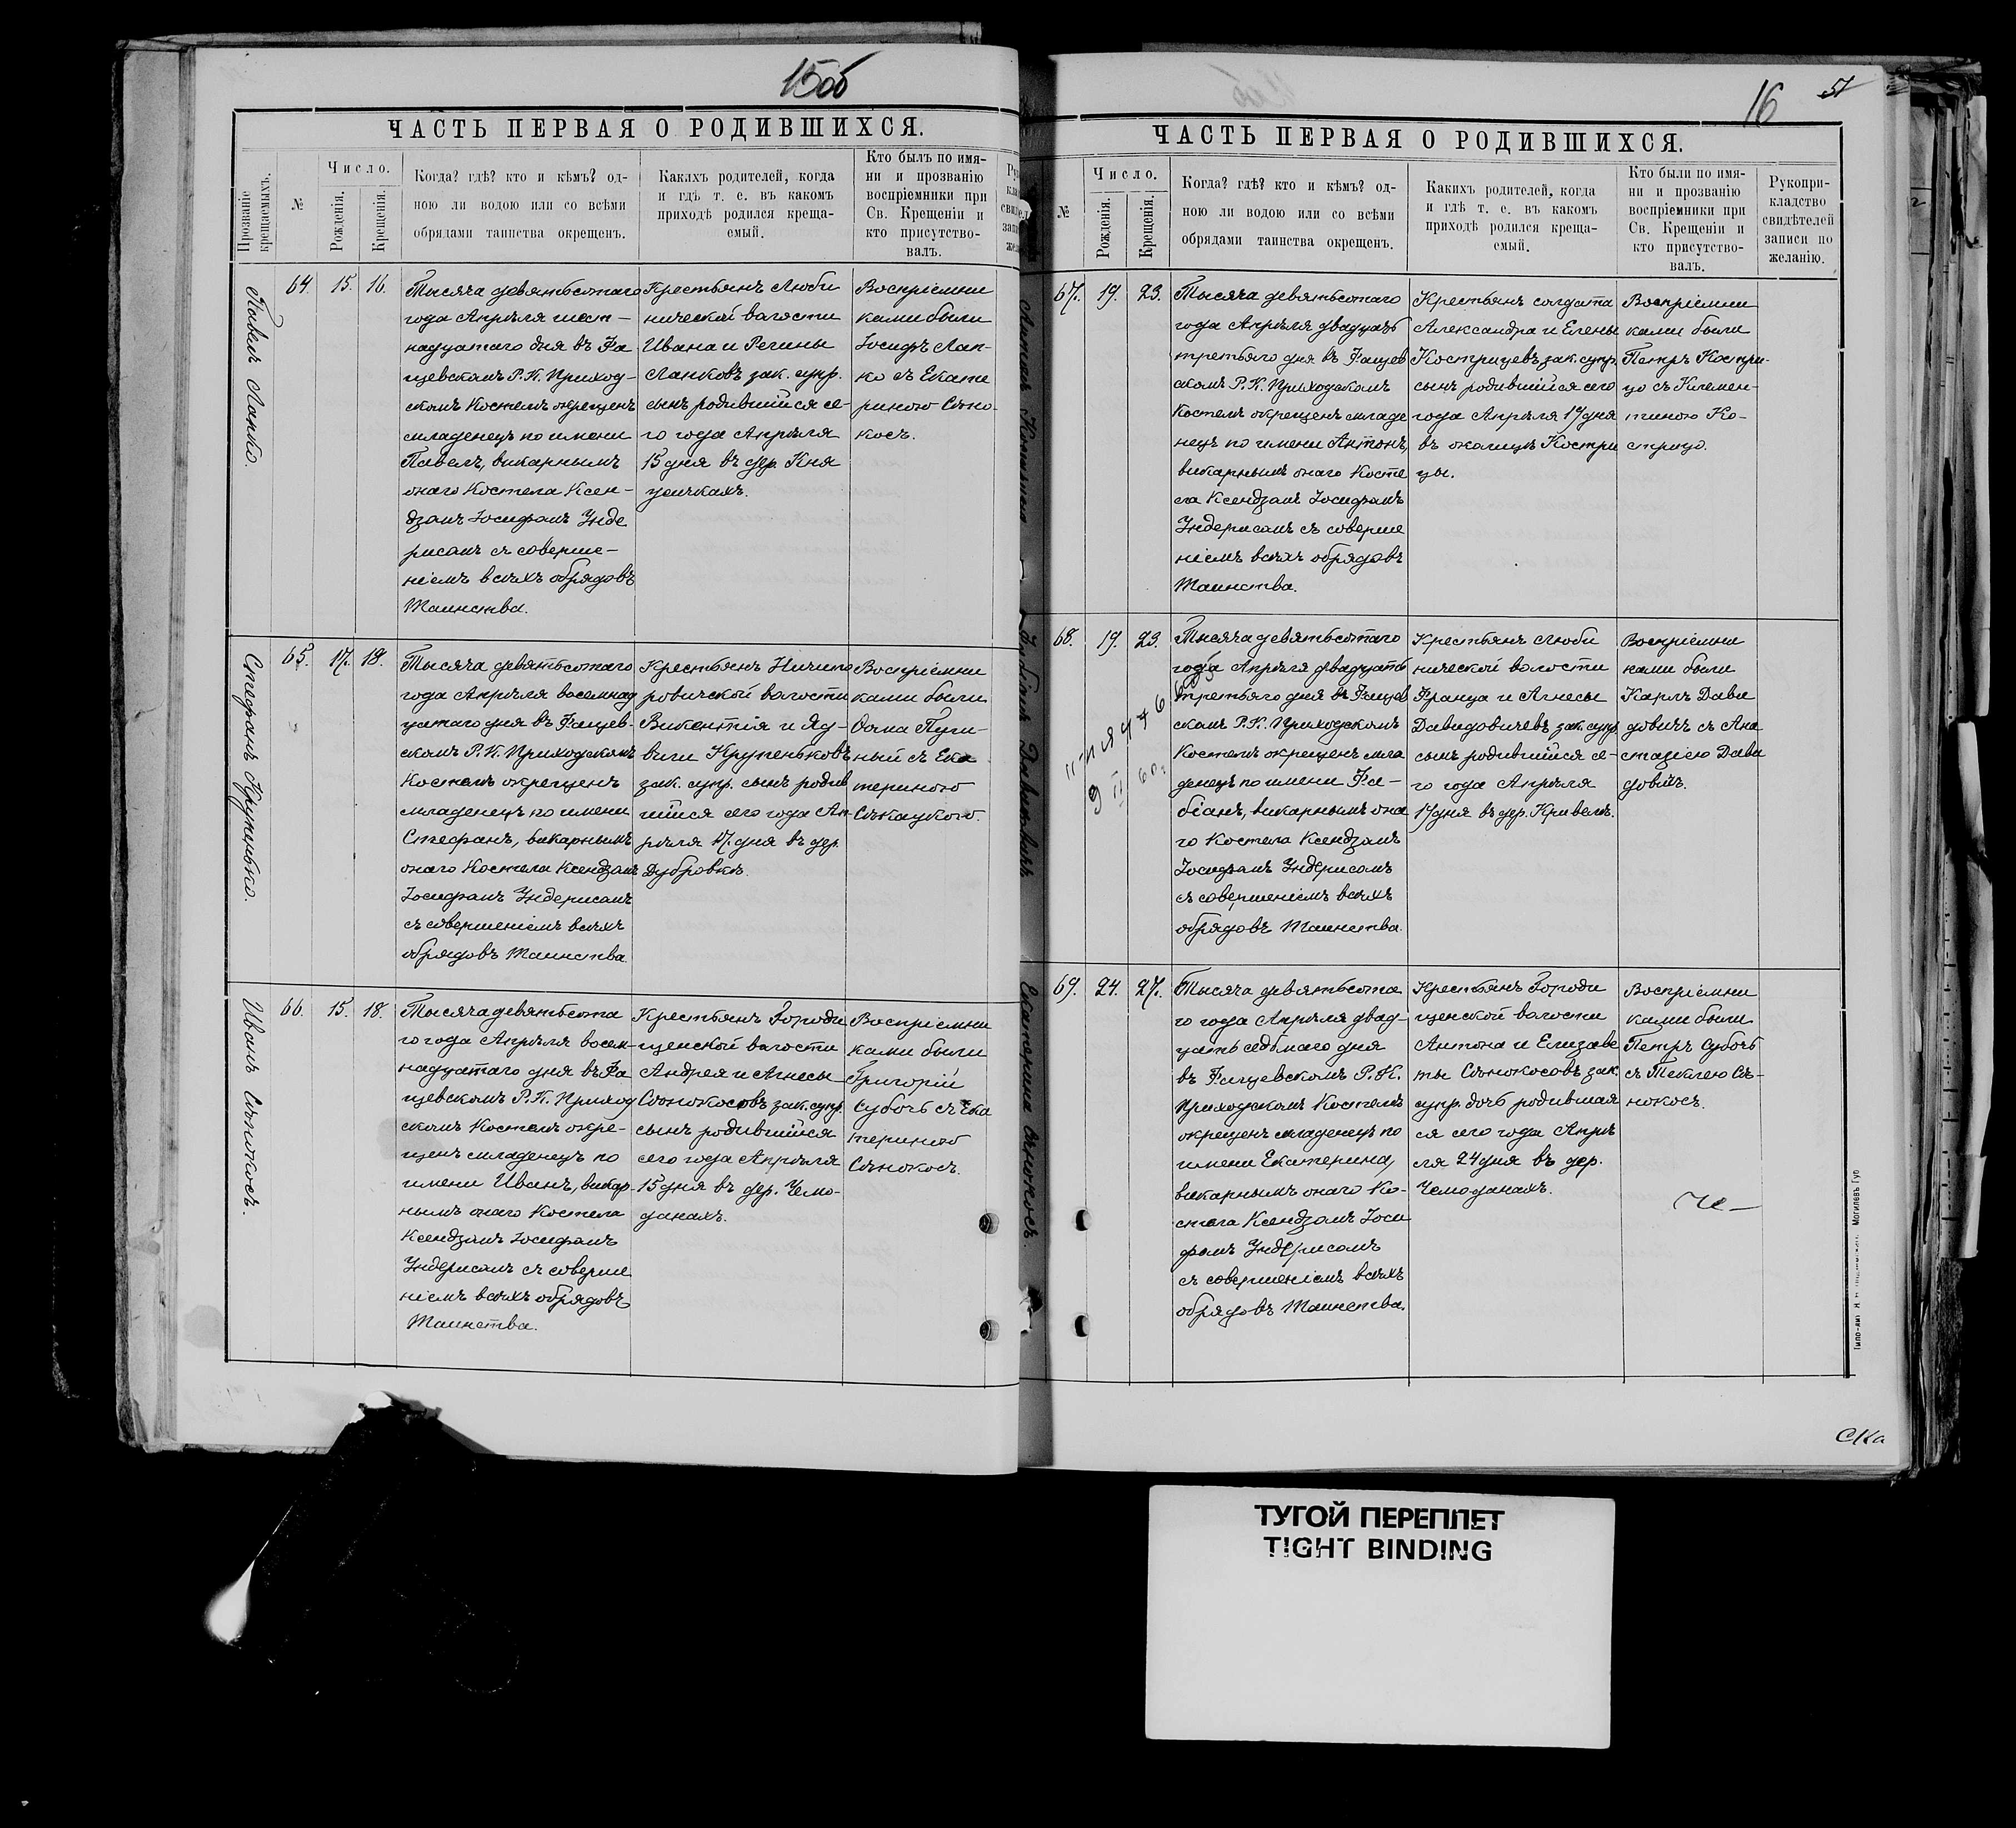 15об
ЧАСТЬ ПЕРВАЯ О РОДИВШИХСЯ.
Прозваніе крещаемыхъ.
№
Число.
Рожденія.
Крещенія.
Когда? гдѣ? кто и кѣмъ? од-
ною ли водою или со всѣми
обрядами таинства окрещенъ.
Какихъ родителей, когда
и гдѣ т. е. въ какомъ
приходѣ родился креща-
емый.
Кто былъ по имя-
ни и прозванію
воспріемники при
Св. Крещеніи и
кто присутство-
валъ.
Павелъ Лапко.
64. 15. 16.
Тысяча девятьсотаго
года Апрѣля шест-
надцатаго дня въ Фа
щевскомъ Р. К. Приход-
скомъ Костелѣ окрещенъ
младенецъ по имени
Павелъ, викарнымъ
онаго Костела Ксен-
дзомъ Іосифомъ Унде
рисомъ съ соверше-
ніемъ всѣхъ обрядовъ
Таинства.
Крестьянъ Люби
нической волости
Ивана и Регины
Лапковъ зак. супр.
сынъ родившійся се-
го года Апрѣля
15 дня въ дер. Кня
Воспріемни
ками были
Іосифъ Лап-
ко съ Екате
риною Сѣно-
косъ.
Стефанъ Крупенько.
65. 17. 18.
Тысяча девятьсотаго
года Апрѣля восемнад
цатаго дня въ Фащев-
скомъ Р. К. Приходскомъ
Костелѣ окрещенъ
младенецъ по имени
Стефанъ, викарнымъ
онаго Костела Ксендзомъ
Іосифомъ Ундерисомъ
съ совершеніемъ всѣхъ
обрядовъ Таинства.
Крестьянъ Ничипо
ровичской волости
Викентія и Яд-
виги Крупеньковъ
зак. супр. сынъ родив
шійся сего года Ап-
рѣля 17. дня въ дер.
Дубровкѣ.
Воспріемни
ками были
Ѳома Пуги-
ный съ Ека
териною
Сѣкацкою.
Иванъ Сѣнокосъ.
66. 15. 18.
Тысяча девятьсота
го года Апрѣля восем-
надцатаго дня въ Фа
щевскомъ Р. К. Приход
скомъ Костелѣ окре-
щенъ младенецъ по
имени Иванъ, викар-
нымъ онаго Костела
Ксендзомъ Іосифомъ
Ундерисомъ съ соверше
ніемъ всѣхъ обрядовъ
Таинства.
Крестьянъ Городи
щенской волости
Андрея и Агнесы
Сѣнокосовъ зак. супр.
сынъ родившійся
сего года Апрѣля
15 дня въ дер. Чемо-
данахъ.
Воспріемни
ками были
Григорій
Суботь съ Ека
териною
Сѣнокосъ.
16 51
ЧАСТЬ ПЕРВАЯ О РОДИВШИХСЯ.
№
Число.
Рожденія.
Крещенія.
Когда? гдѣ? кто и кѣмъ? од-
ною ли водою или со всѣми
обрядами таинства окрещенъ.
Какихъ родителей, когда
и гдѣ т. е. въ какомъ
приходѣ родился креща-
емый.
Кто были по имя-
ни и прозванію
воспріемники при
Св. Крещеніи и
кто присутство-
валъ.
Рукопри-
кладство
свидѣтелей
записи по
желанію.
Антонъ
67. 19. 23.
Тысяча девятьсотаго
года Апрѣля двадцать
третьяго дня въ Фащев
скомъ Р. К. Приходскомъ
Костелѣ окрещенъ младе
нецъ по имени Антонъ,
викарнымъ онаго Косте
ла Ксендзомъ Іосифомъ
Ундерисомъ съ соверше
ніемъ всѣхъ обрядовъ
Таинства.
Крестьянъ солдата
Александра и Елены
Кострицевъ зак. супр.
сынъ родившійся сего
года Апрѣля 19 дня
въ околицѣ Костри
цы.
Воспріемни
ками были
Петръ Костри-
цо съ Клемен-
тиною Ко-
стрицо.
Фабіанъ Давидовичъ
68. 19. 23.
Тысяча девятьсотаго
года Апрѣля двадцать
третьяго дня въ Фащев
скомъ Р. К. Приходскомъ
Костелѣ окрещенъ мла
денецъ по имени Фа-
біанъ, викарнымъ она
го Костела Ксендзомъ
Іосифомъ Ундерисомъ
съ совершеніемъ всѣхъ
обрядовъ Таинства.
Крестьянъ Люби
нической волости
Франца и Агнесы
Давидовичевъ зак. супр.
сынъ родившійся се-
го года Апрѣля
19 дня въ дер. Кривелѣ.
Воспріемни
ками были
Карлъ Дави
довичъ съ Ана
стазіею Дави
довичъ.
Екатерина Сѣнокосъ.
69. 24. 27.
Тысяча девятьсота
го года Апрѣля двад-
цать седьмаго дня
въ Фащевскомъ Р. К.
Приходскомъ Костелѣ
окрещенъ младенецъ по
имени Екатерина,
викарнымъ онаго Ко-
стела Ксендзомъ Іоси
фомъ Ундерисомъ
съ совершеніемъ всѣхъ
обрядовъ Таинства.
Крестьянъ Городи
щенской волости
Антона и Елизаве
ты Сѣнокосовъ зак.
супр. дочь родившая
ся сего года Апрѣ
ля 24 дня въ дер.
Чемоданахъ.
Воспріемни
ками были
Петръ Суботь
съ Теклею Сѣ-
нокосъ.
Могилевъ Губ
ска
ТУГОЙ ПЕРЕПЛЕТ
TIGHT BINDING